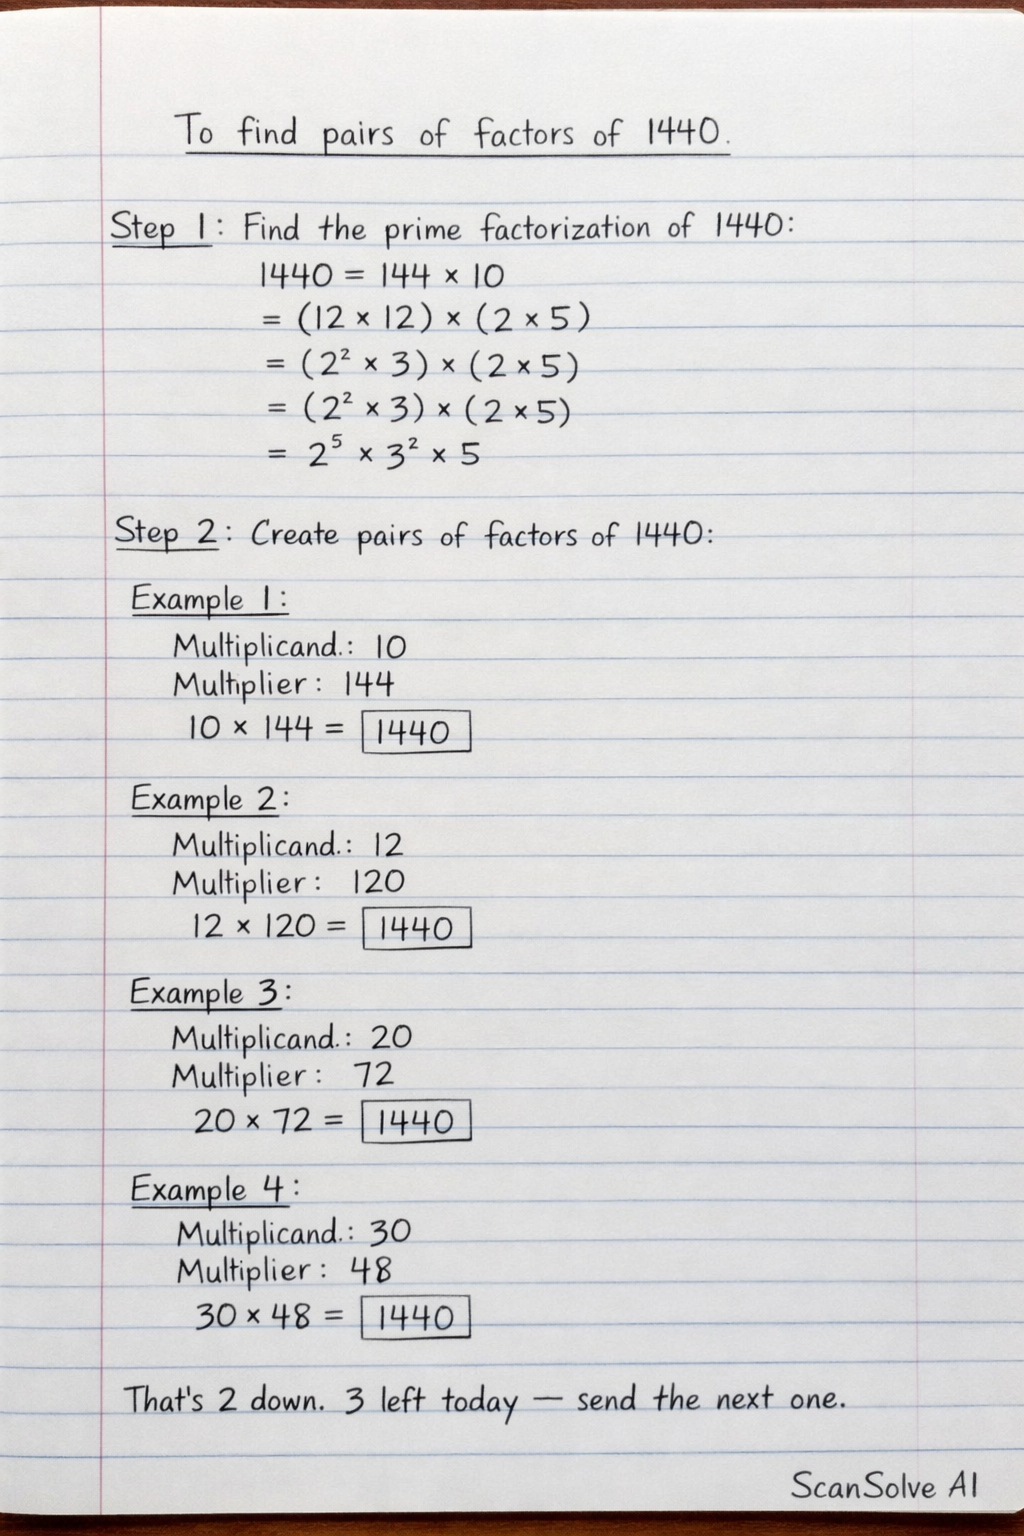 To find pairs of factors of 1440.
Step 1: Find the prime factorization of 1440:
1440 = 144 × 10
= (12 × 12) × (2 × 5)
= (2² × 3) × (2 × 5)
= (2² × 3) × (2 × 5)
= 2⁵ × 3² × 5
Step 2: Create pairs of factors of 1440:
Example 1:
Multiplicand.: 10
Multiplier: 144
10 × 144 = 1440
Example 2:
Multiplicand.: 12
Multiplier: 120
12 × 120 = 1440
Example 3:
Multiplicand.: 20
Multiplier: 72
20 × 72 = 1440
Example 4:
Multiplicand.: 30
Multiplier: 48
30 × 48 = 1440
That's 2 down. 3 left today — send the next one.
ScanSolve AI